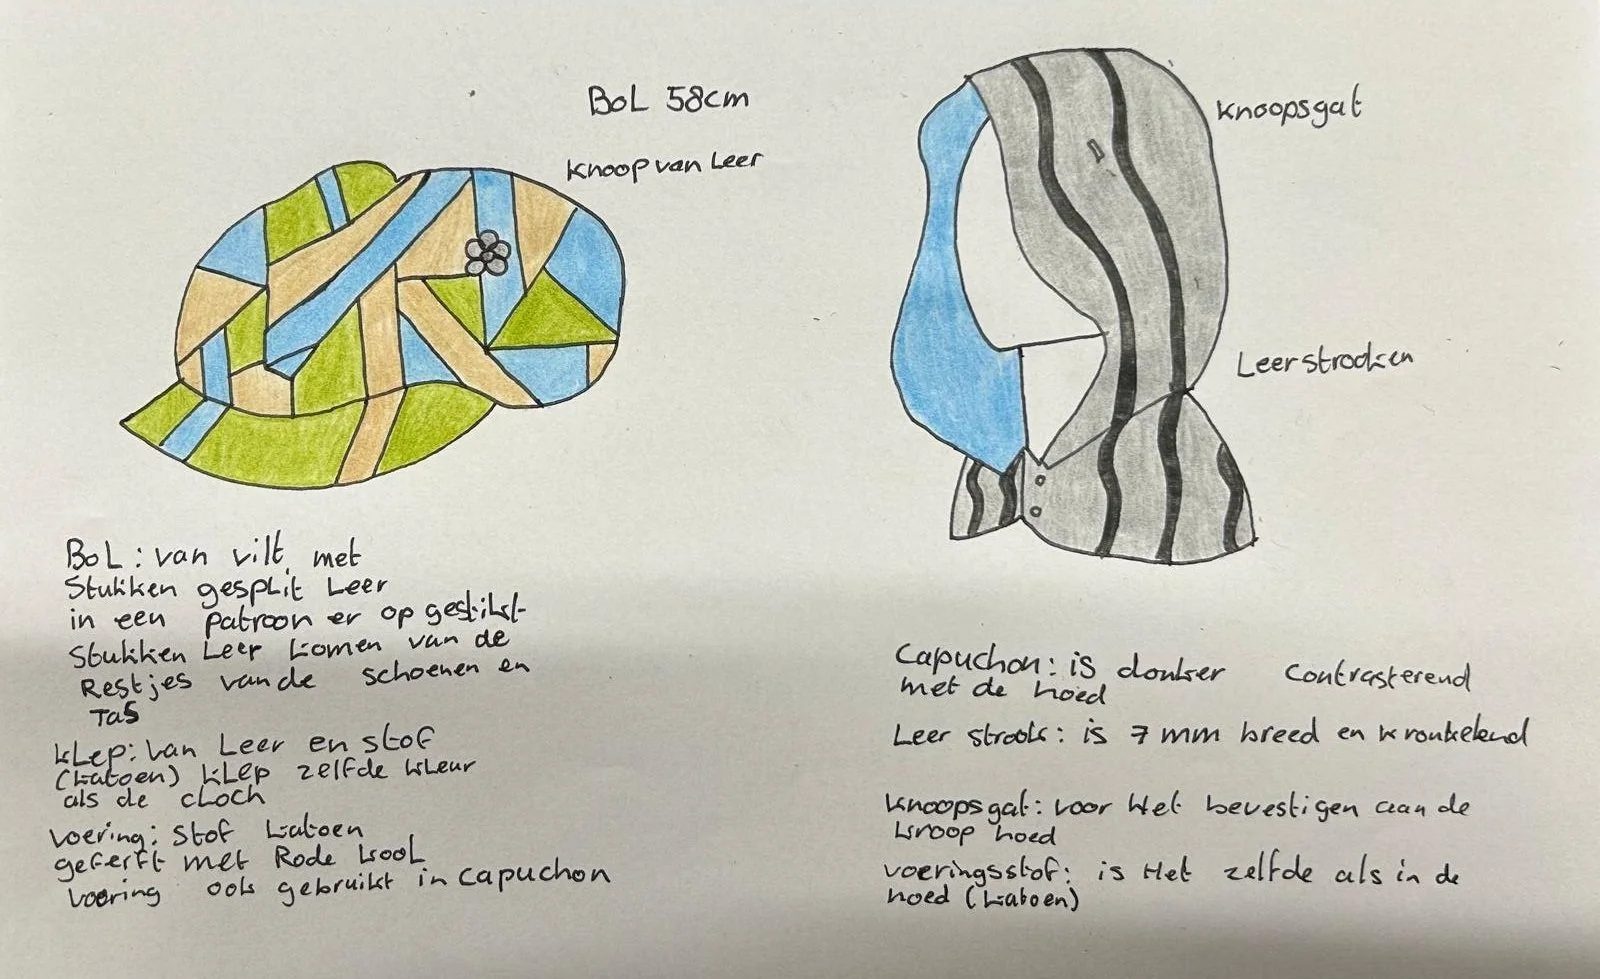 BoL 58cm
Knoop van Leer
BoL: van vilt, met
Stukken gesplit Leer
in een patroon er op gestikt
Stukken Leer komen van de
Restjes van de schoenen en
Tas
kLep: van Leer en stof
(katoen) kLep zelfde kleur
als de cloch
voering: stof katoen
geferft met Rode kooL
voering ook gebruikt in capuchon
Knoopsgat
Leerstrooken
Capuchon: is donker contrasterend
met de hoed
Leer strook: is 7 mm breed en kronkelend
Knoopsgat: voor Het bevestigen aan de
knoop hoed
voeringsstof: is Het zelfde als in de
hoed (katoen)